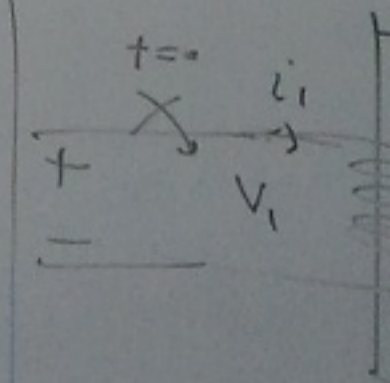 t=0
i₁
+
V₁
−